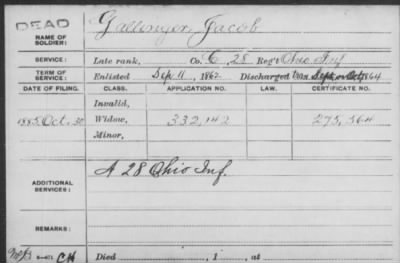 DEAD
NAME OF SOLDIER: Gallinger, Jacob
SERVICE: Late rank, Co. C, 28 Reg't Ohio Inf
TERM OF SERVICE: Enlisted Sep. 11, 1862 Discharged Sept or Oct, 1864
DATE OF FILING. CLASS. APPLICATION NO. LAW. CERTIFICATE NO.
Invalid,
1885 Oct. 30 Widow, 332,142 275,564
Minor,
ADDITIONAL SERVICES: A 28 Ohio Inf.
REMARKS:
Died , 1 , at